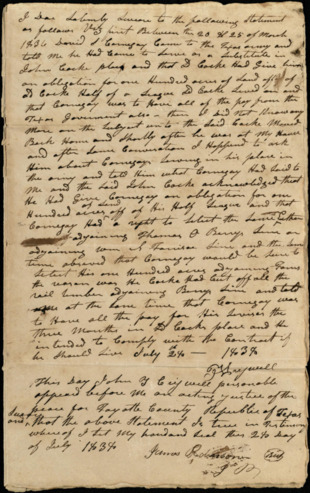 I Do Solemnly Sweare to the following Statement
as follows Viz that Between the 20 & 28 of March
1836 David S Cornegay Came to the Texas army and
told me he had Came to Serve as a Substitute in
John Cocke place and that Cocke had Give him
an obligation for one Hundred acres of Land off of
Cocke Half of a League Cocke Lived on and
that Cornegay was to Have all of the pay from the
Texas Government also - then I did not Know any
More on the Subject until the said Cocke Moved
Back Home and Shortly after he was at My House
and after Some Conversation I Happened to ask
Him about Cornegay Serving in his place in
the army and told Him what Cornegay Had Said to
Me and the Said John Cocke acknowledged that
He Had Give Cornegay an obligation for one
Hundred acres of Land off of his Half League and that
Cornegay Had a right to Select the Same Either
adjoyning Thomas O Berrys Line or
adjoyning Wm Harrison Line and the Same
time observed that Cornegay would be Sure to
Select His one Hundred acres adjoyning
the reason was He Cocke Had Cut off all the
rail timber adjoyning Berrys Line and told
me at the Same time that Cornegay was
to Have all the pay for His Services the
three Months in Cocke place and He
intended to Comply with the Contract if
he Should Live July 24 - 1838
Criswell
This day John Y Criswell personable
appear before Me an acting justice of the
peace for Fayette County Republic of Texas
and that the above Statement is true in testimony
whereof I Set My hand and Seal this 24 day
of July 1838
James
J P